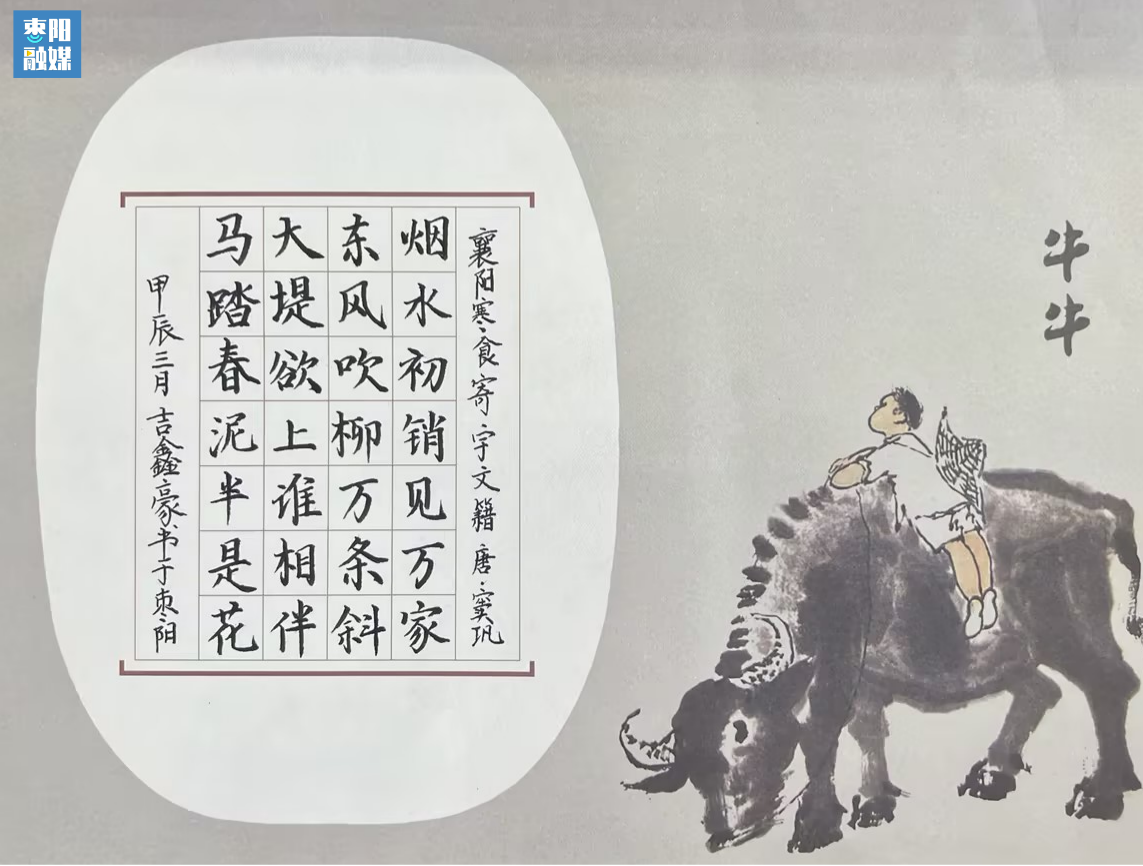 枣阳
融媒
襄阳寒食寄宇文籍 唐·窦巩
烟水初销见万家
东风吹柳万条斜
大堤欲上谁相伴
马踏春泥半是花
甲辰三月吉鑫豪书于枣阳
牛牛